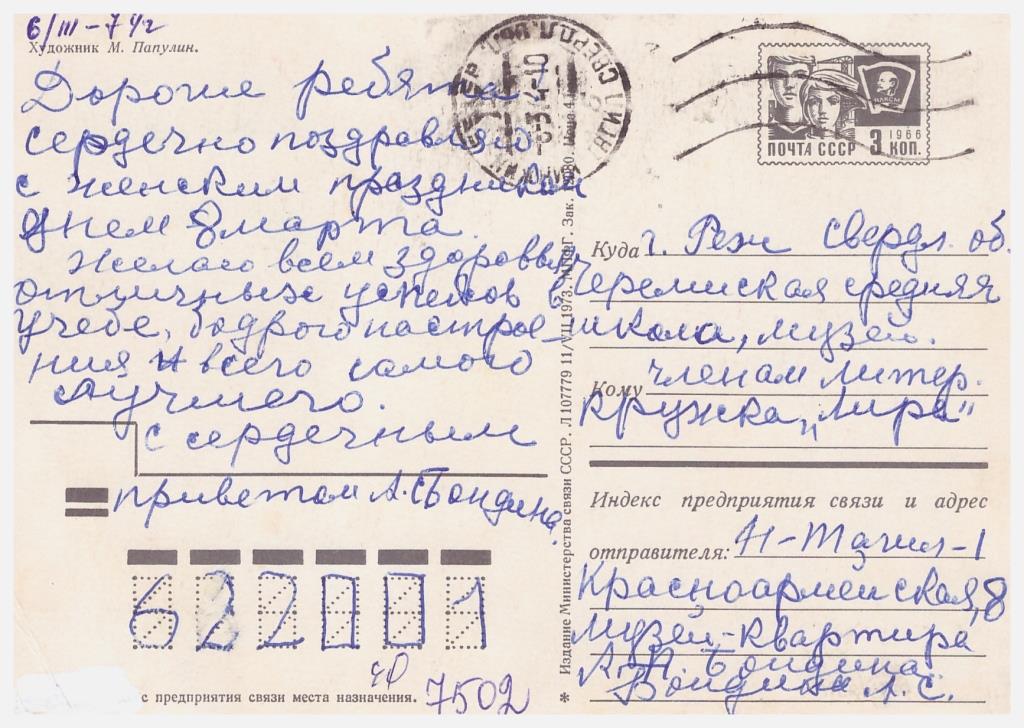 6/III-74г
Художник М. Папулин.
Дорогие ребята!
сердечно поздравляю
с женским праздником
Днем 8 марта.
Желаю всем здоровья,
отличных успехов в
учебе, бодрого настрое-
ния и всего самого
лучшего.
с сердечным
приветом А. Бондина.
622001
с предприятия связи места назначения.
7502
* Издание Министерства связи СССР. Л 107779 11/VII 1973. МПФГ. Зак. Цена 4 к.
ПОЧТА СССР 3 КОП.
1966
ВЛКСМ
Куда г. Реж Свердл. об.
Черемисская средняя
школа, музей.
Кому членам литер.
кружка „Лира"
Индекс предприятия связи и адрес
отправителя: Н-Тагил-1
Красноармейская, 8
музей-квартира
А.П. Бондина
Бондина А.С.